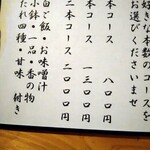 好きな本数のコースを
お選びくださいませ
本コース 八〇〇円
本コース 一三〇〇円
二本コース 二〇〇〇円
白ご飯・お味噌汁
小鉢・一品・香の物
たれ四種・甘味 付き